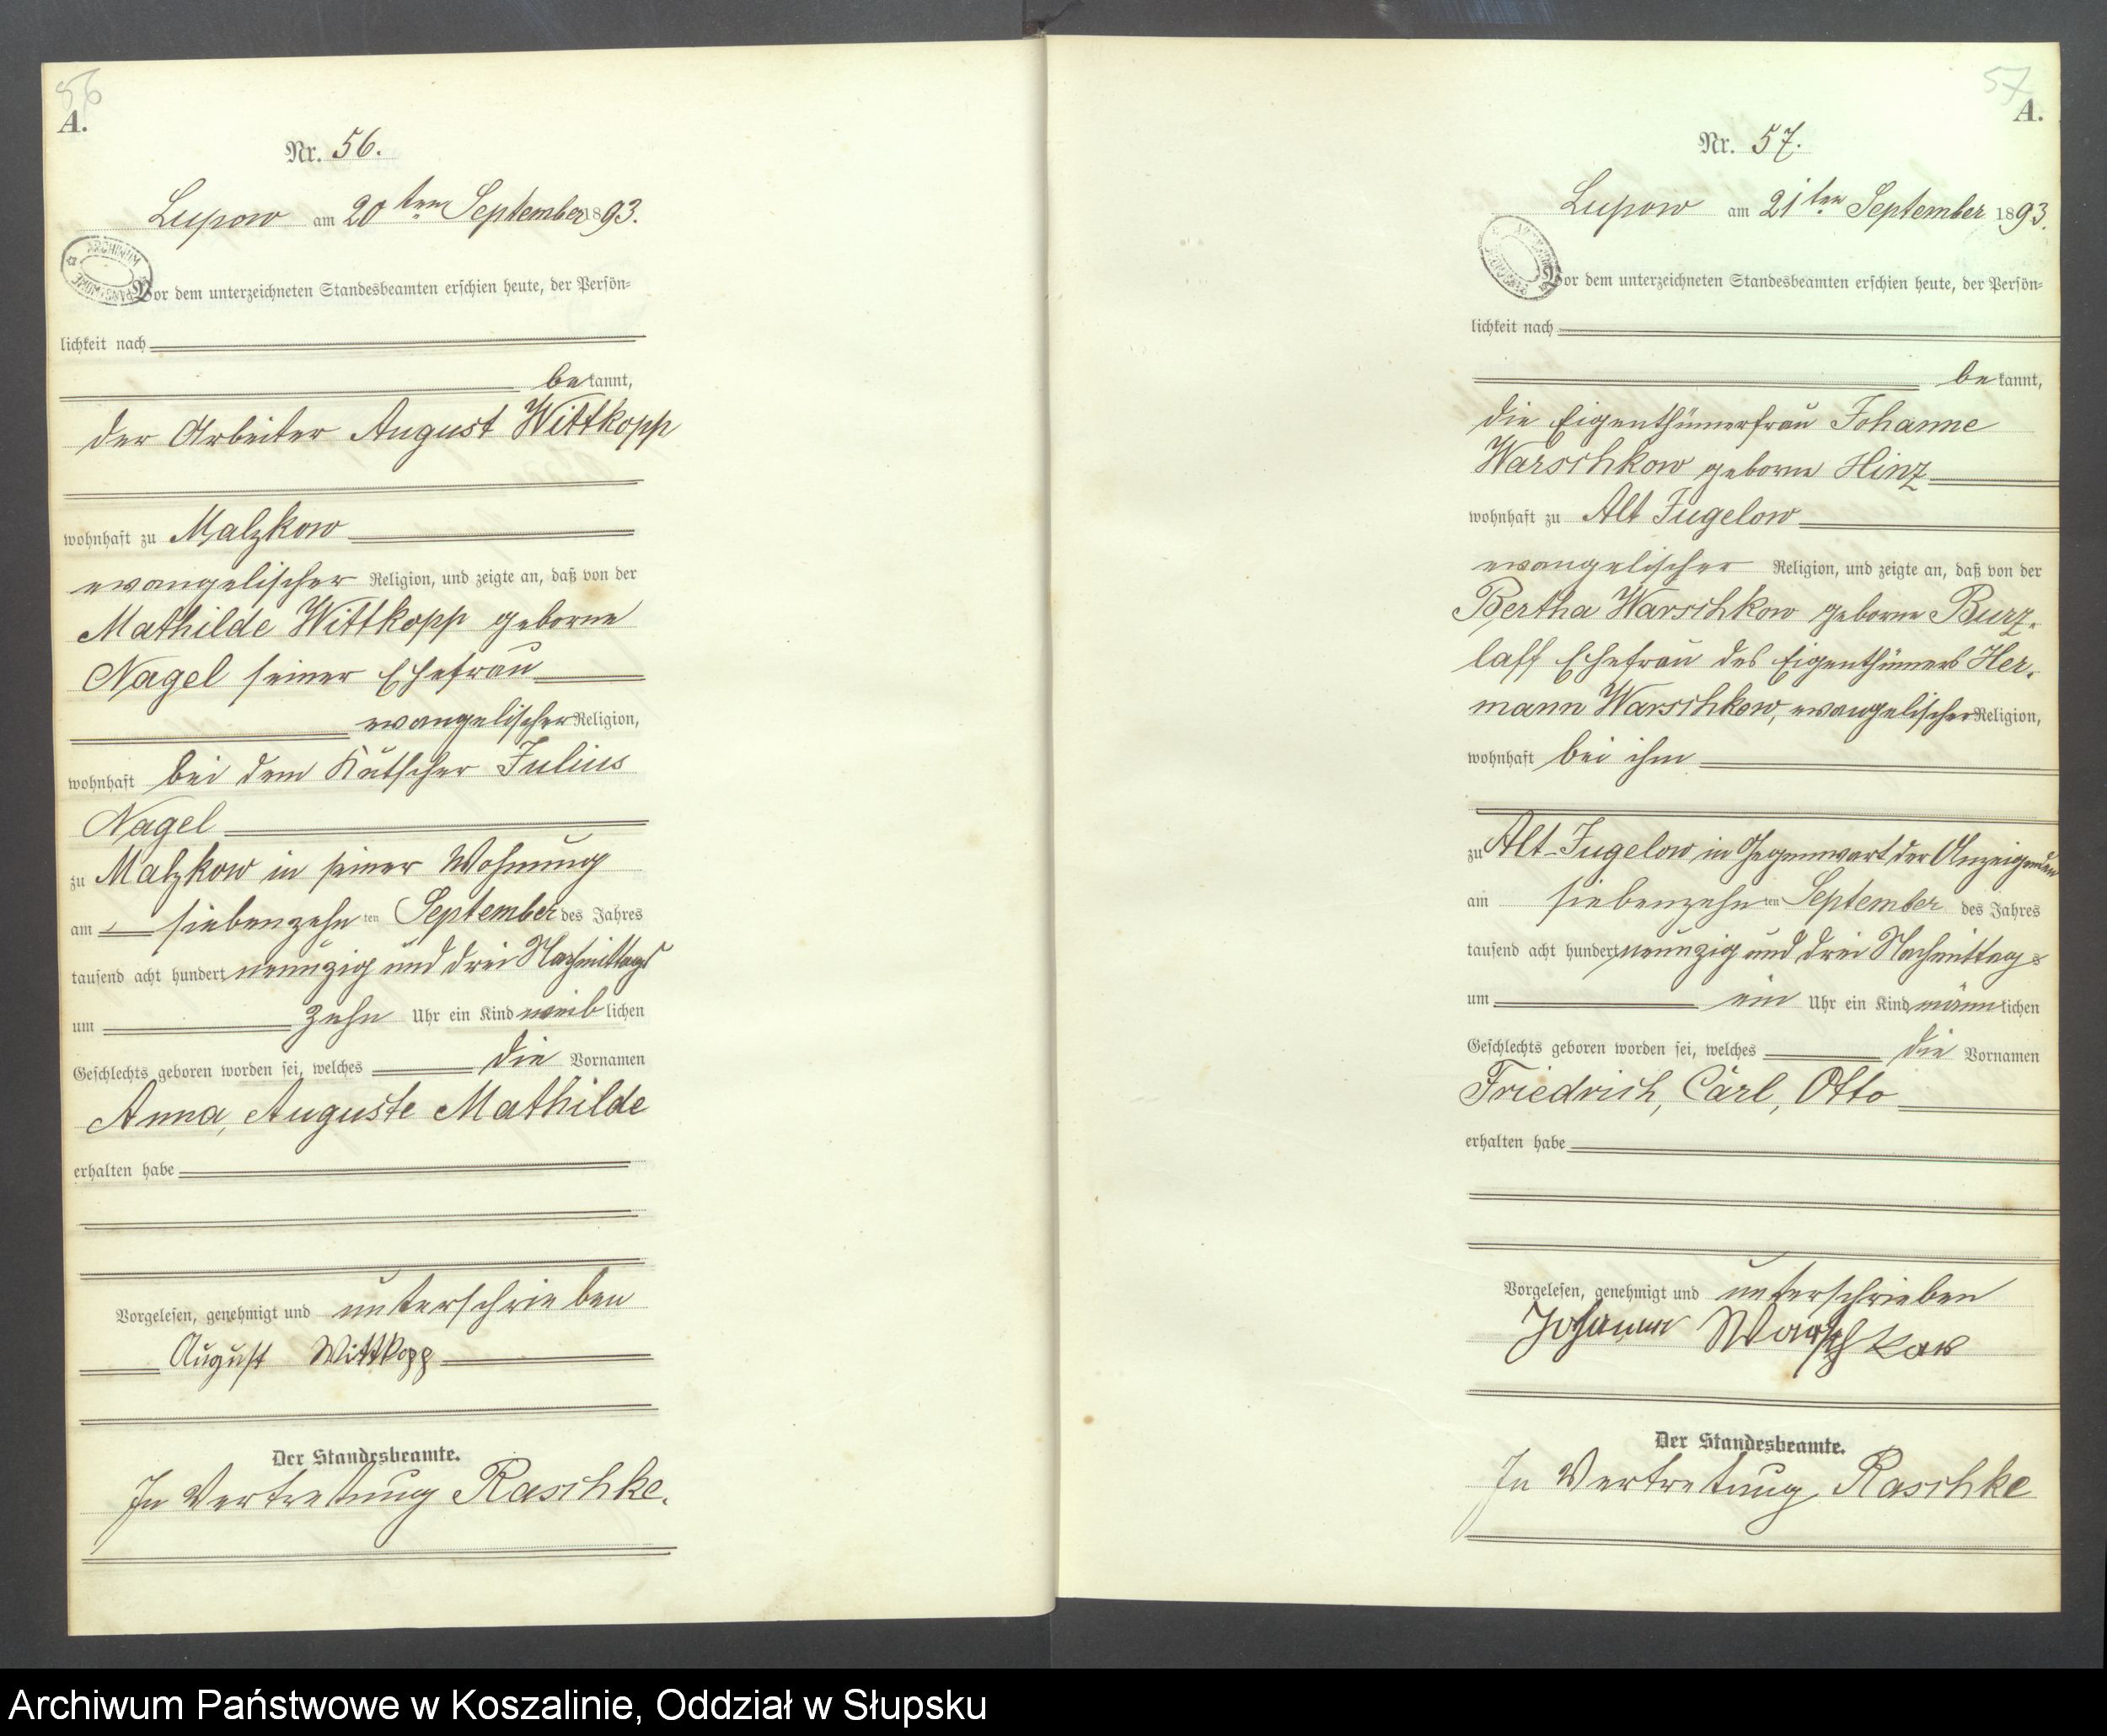 56
A.
Nr. 56.
Lupow am 20ten September 1893.
ARCHIWUM
Vor dem unterzeichneten Standesbeamten erschien heute, der Persön=
lichkeit nach
bekannt,
der Arbeiter August Wittkopp
wohnhaft zu Malzkow
evangelischer Religion, und zeigte an, daß von der
Mathilde Wittkopp geborne
Nagel seiner Ehefrau
evangelischer Religion,
wohnhaft bei dem Käthscher Julius
Nagel
zu Malzkow in seiner Wohnung
am siebenzehnten September des Jahres
tausend acht hundert neunzig und drei Nachmittags
um zehn Uhr ein Kind weiblichen
Geschlechts geboren worden sei, welches die Vornamen
Anna, Auguste Mathilde
erhalten habe
Vorgelesen, genehmigt und unterschrieben
August Wittkopp
Der Standesbeamte.
In Vertretung Raschke.
57
A.
Nr. 57.
Lupow am 21ten September 1893.
Vor dem unterzeichneten Standesbeamten erschien heute, der Persön=
lichkeit nach
bekannt,
die Eigenthümerfrau Johanne
Warschkow geborne Hinz
wohnhaft zu Alt Jugelow
evangelischer Religion, und zeigte an, daß von der
Bertha Warschkow geborne Burz-
laff Ehefrau des Eigenthümers Her-
mann Warschkow, evangelischer Religion,
wohnhaft bei ihm
zu Alt-Jugelow in Gegenwart der Anzeigenden
am siebenzehnten September des Jahres
tausend acht hundert neunzig und drei Nachmittags
um ein Uhr ein Kind männlichen
Geschlechts geboren worden sei, welches die Vornamen
Friedrich, Carl, Otto
erhalten habe
Vorgelesen, genehmigt und unterschrieben
Johanne Warschkow
Der Standesbeamte.
In Vertretung Raschke
Archiwum Państwowe w Koszalinie, Oddział w Słupsku